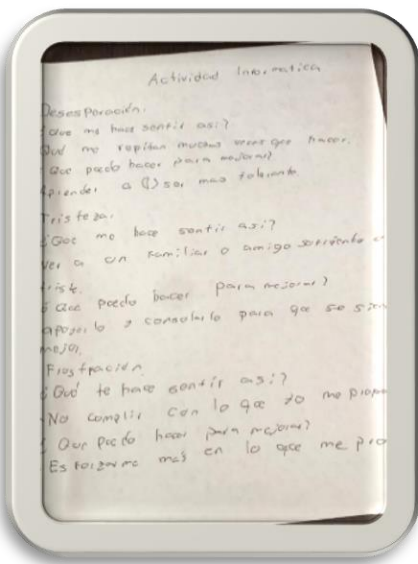 Actividad Informatica
Desesperación.
¿Que me hace sentir asi?
Qué me repitan muchas veces que hacer.
¿Que puedo hacer para mejorar?
Aprender a ser mas tolerante
Tristeza.
¿Que me hace sentir asi?
Ver a un familiar o amigo
triste.
¿Que puedo hacer para mejorar?
apoyarlo y consolarlo para que se
mejor.
Frustración
¿Qué te hace sentir asi?
No cumplir con lo que yo me
¿Que puedo hacer para mejorar?
Esforzarme más en lo que me